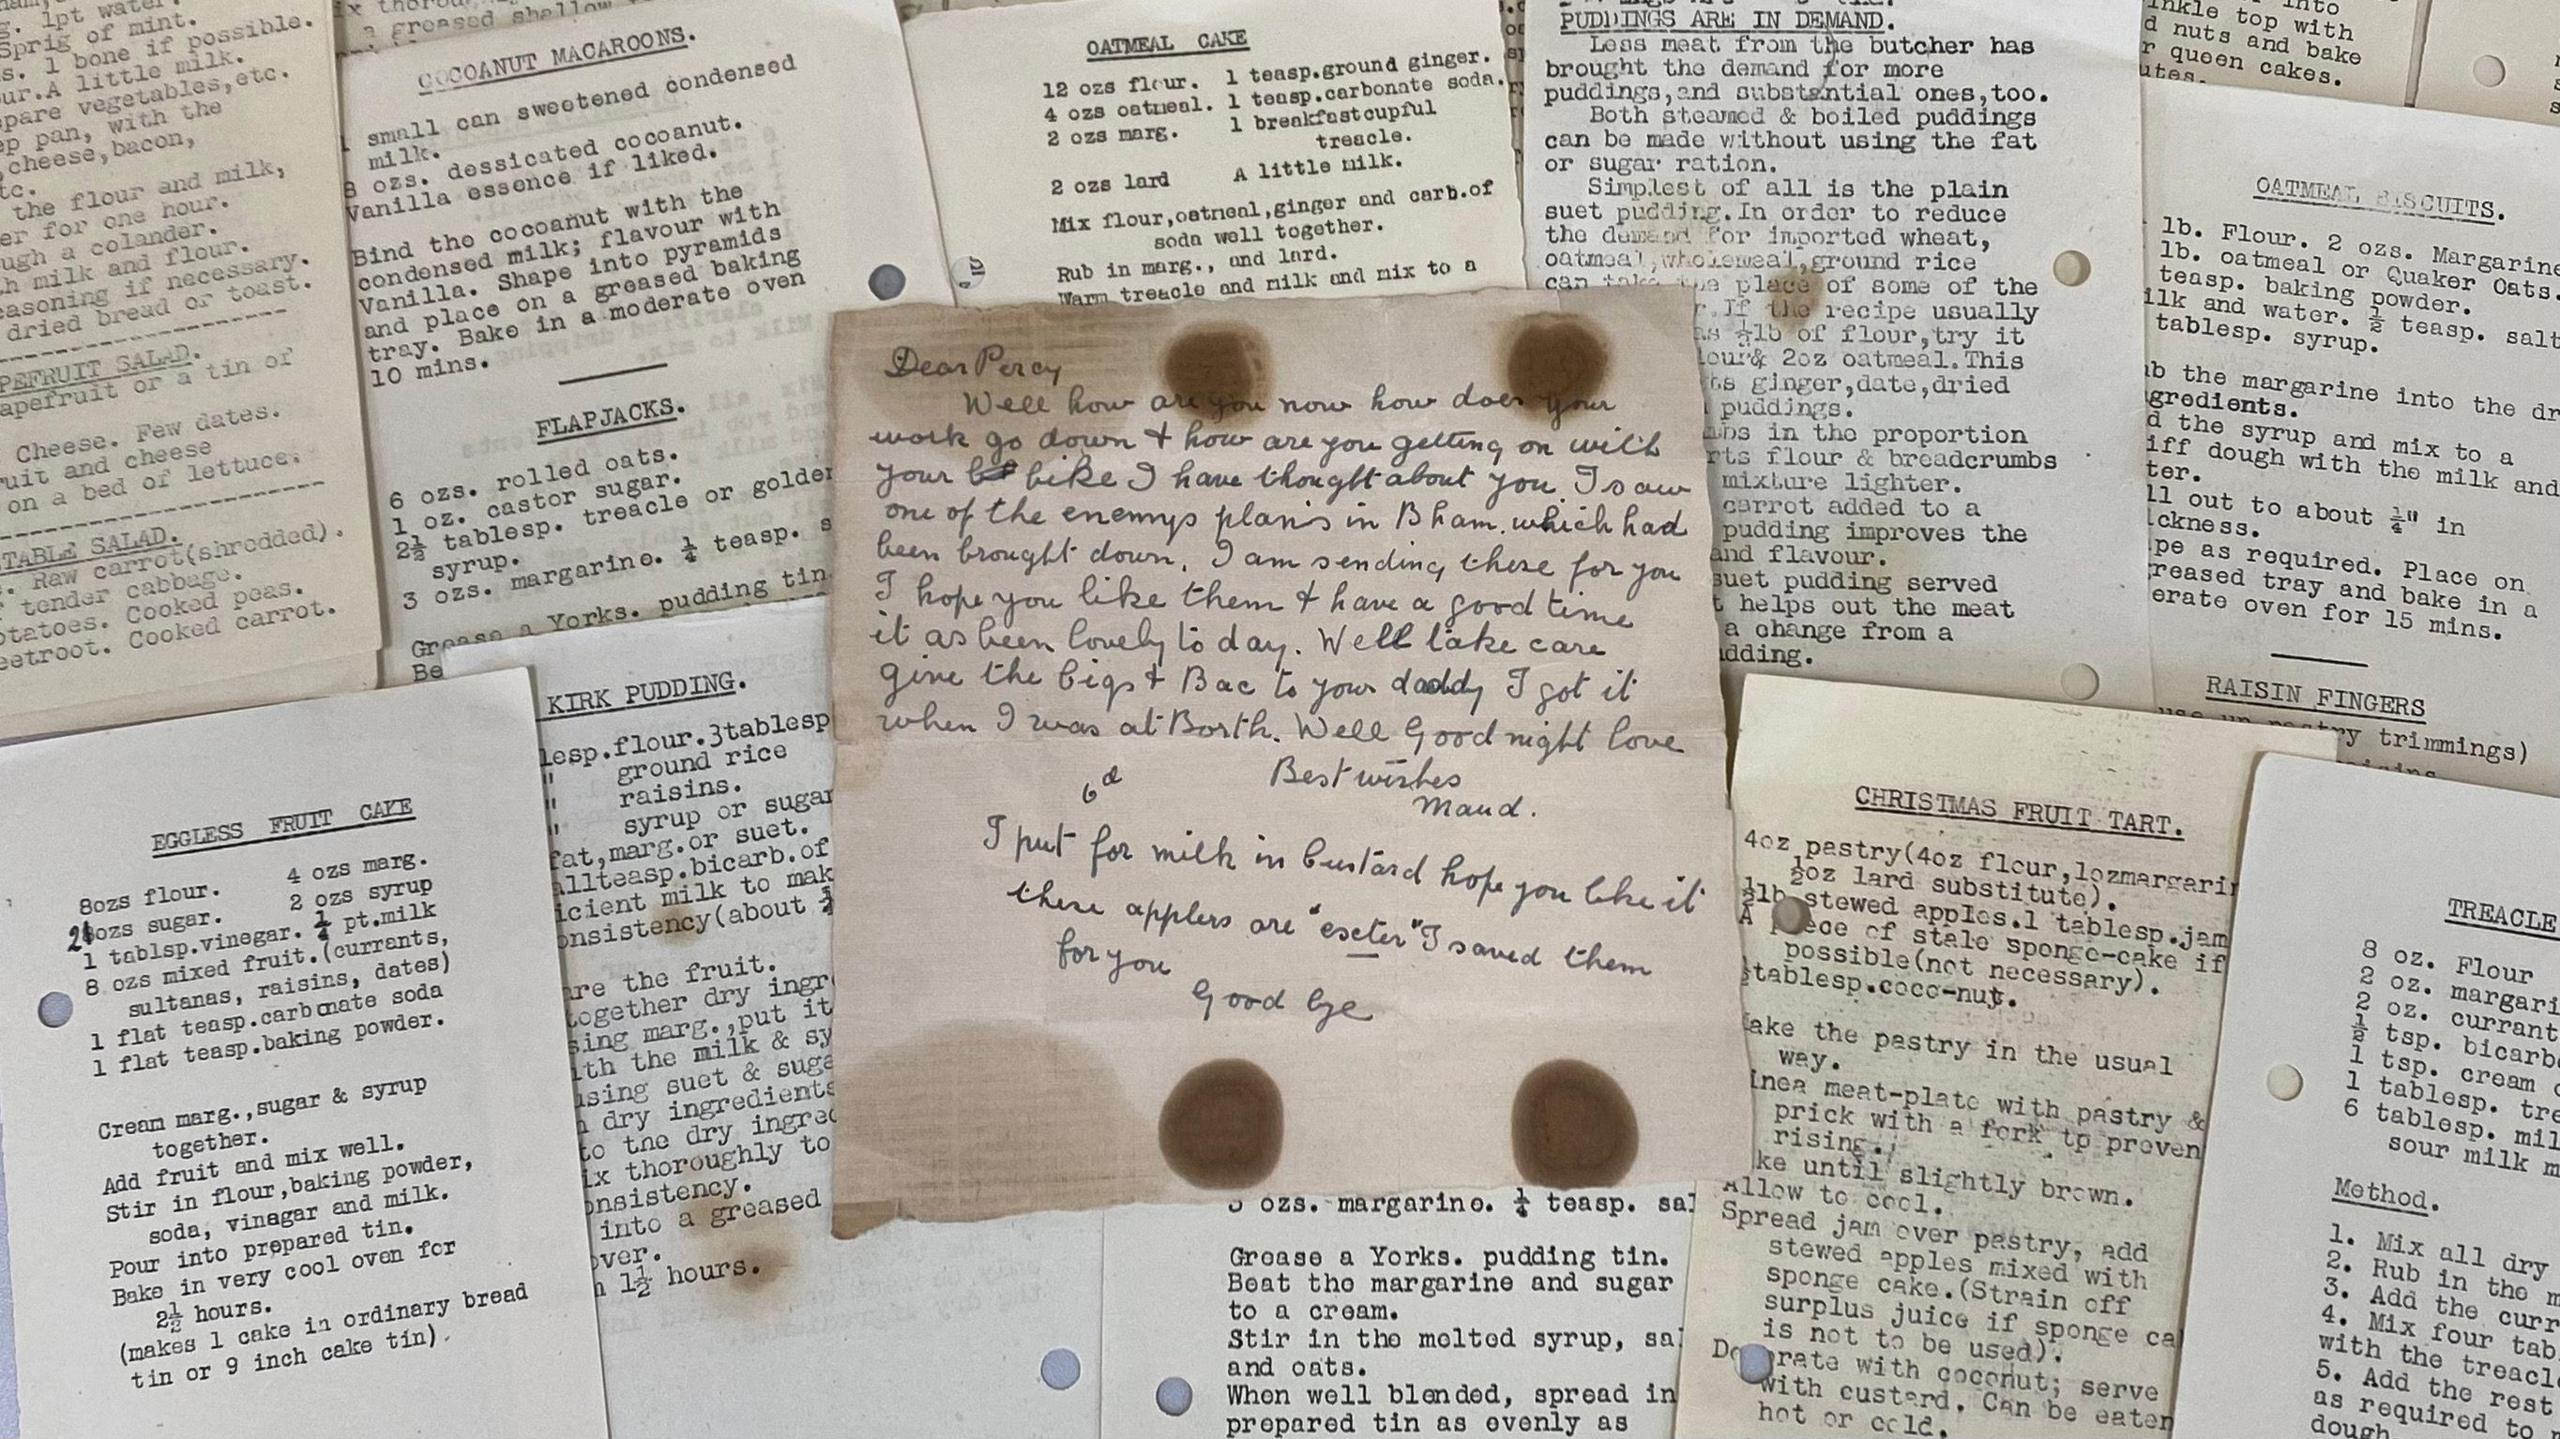 1pt water.
Sprig of mint.
1 bone if possible.
A little milk.
pare vegetables,etc.
pan, with the
cheese,bacon,
the flour and milk,
for one hour.
a colander.
milk and flour.
if necessary.
dried bread or toast.
SALAD.
or a tin of
Cheese. Few dates.
and cheese
on a bed of lettuce.
SALAD.
Raw carrot(shredded).
tender cabbage.
Cooked peas.
Cooked carrot.
a greased shallow
COCOANUT MACAROONS.
1 small can sweetened condensed
milk.
8 ozs. dessicated cocoanut.
Vanilla essence if liked.
Bind the cocoanut with the
condensed milk; flavour with
Vanilla. Shape into pyramids
and place on a greased baking
tray. Bake in a moderate oven
10 mins.
FLAPJACKS.
6 ozs. rolled oats.
1 oz. castor sugar.
2½ tablesp. treacle or golden
syrup.
3 ozs. margarine. ¼ teasp. s
Grease a Yorks. pudding tin.
Be
OATMEAL CAKE
12 ozs flour. 1 teasp.ground ginger.
4 ozs oatmeal. 1 teasp.carbonate soda.
2 ozs marg. 1 breakfastcupful
treacle.
2 ozs lard A little milk.
Mix flour,oatmeal,ginger and carb.of
soda well together.
Rub in marg., and lard.
Warm treacle and milk and mix to a
PUDDINGS ARE IN DEMAND.
Less meat from the butcher has
brought the demand for more
puddings,and substantial ones,too.
Both steamed & boiled puddings
can be made without using the fat
or sugar ration.
Simplest of all is the plain
suet pudding.In order to reduce
the demand for imported wheat,
oatmeal,wholemeal,ground rice
can take the place of some of the
If the recipe usually
½lb of flour,try it
& 2oz oatmeal.This
ginger,date,dried
puddings.
in the proportion
flour & breadcrumbs
mixture lighter.
carrot added to a
pudding improves the
and flavour.
suet pudding served
helps out the meat
a change from a
into
top with
nuts and bake
queen cakes.
OATMEAL BISCUITS.
lb. Flour. 2 ozs. Margarine
lb. oatmeal or Quaker Oats.
teasp. baking powder.
and water. ½ teasp. salt
tablesp. syrup.
the margarine into the
the syrup and mix to a
dough with the milk and
out to about ¼" in
as required. Place on
greased tray and bake in a
oven for 15 mins.
RAISIN FINGERS
trimmings)
Dear Percy
Well how are you now how does your
work go down & how are you getting on with
your bike I have thought about you. I saw
one of the enemys plans in Bham. which had
been brought down. I am sending these for you
I hope you like them & have a good time
it as been lovely to day. Well take care
give the cigs & Bac to your daddy I got it
when I was at Borth. Well Good night love
6d Best wishes
Maud.
I put for milk in custard hope you like it
these applers are "exeter" I saved them
for you
Good bye
EGGLESS FRUIT CAKE
8ozs flour. 4 ozs marg.
ozs sugar. 2 ozs syrup
1 tablsp.vinegar. ¼ pt.milk
8 ozs mixed fruit.(currants,
sultanas, raisins, dates)
1 flat teasp.carbonate soda
1 flat teasp.baking powder.
Cream marg.,sugar & syrup
together.
Add fruit and mix well.
Stir in flour,baking powder,
soda, vinegar and milk.
Pour into prepared tin.
Bake in very cool oven for
2½ hours.
(makes 1 cake in ordinary bread
tin or 9 inch cake tin).
KIRK PUDDING.
flour.3tablesp
" ground rice
" raisins.
" syrup or sugar
fat,marg.or suet.
bicarb.of
milk to mak
(about ½
the fruit.
together dry ingr
marg.,put it
with the milk & sy
using suet & suga
dry ingredients
to the dry ingred
thoroughly to
into a greased
1½ hours.
3 ozs. margarine. ¼ teasp. sal
Grease a Yorks. pudding tin.
Beat the margarine and sugar
to a cream.
Stir in the melted syrup, sal
and oats.
When well blended, spread in
prepared tin as evenly as
CHRISTMAS FRUIT TART.
4oz pastry(4oz flour,1ozmargarin
½oz lard substitute).
½lb stewed apples.1 tablesp.jam
A piece of stale sponge-cake if
possible(not necessary).
tablesp.coco-nut.
Make the pastry in the usual
way.
meat-plate with pastry &
prick with a fork to preven
rising.
until slightly brown.
Allow to cool.
Spread jam over pastry, add
stewed apples mixed with
sponge cake.(Strain off
surplus juice if sponge ca
is not to be used).
Decorate with coconut; serve
with custard. Can be eaten
hot or cold.
TREACLE
8 oz. Flour
2 oz. margari
2 oz. currant
½ tsp. bicarb
1 tsp. cream
1 tablesp. tre
6 tablesp. mil
sour milk m
Method.
1. Mix all dry
2. Rub in the m
3. Add the curr
4. Mix four tab
with the treacl
5. Add the rest
as required to
dough.